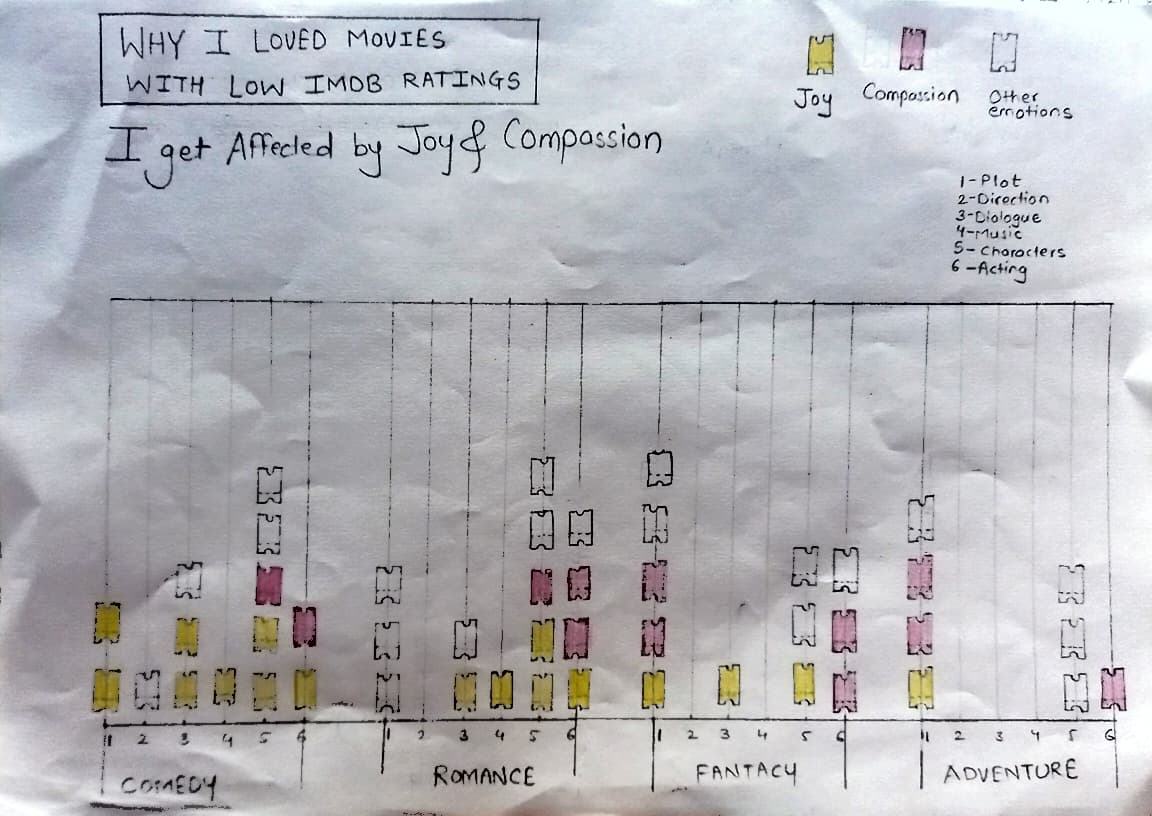 WHY I LOVED MOVIES
WITH LOW IMDB RATINGS
I get Affected by Joy & Compassion
Joy
Compassion
Other
emotions
1-Plot
2-Direction
3-Dialogue
4-Music
5-Characters
6-Acting
1 2 3 4 5 6 1 2 3 4 5 6 1 2 3 4 5 6 1 2 3 4 5 6
COMEDY ROMANCE FANTACY ADVENTURE